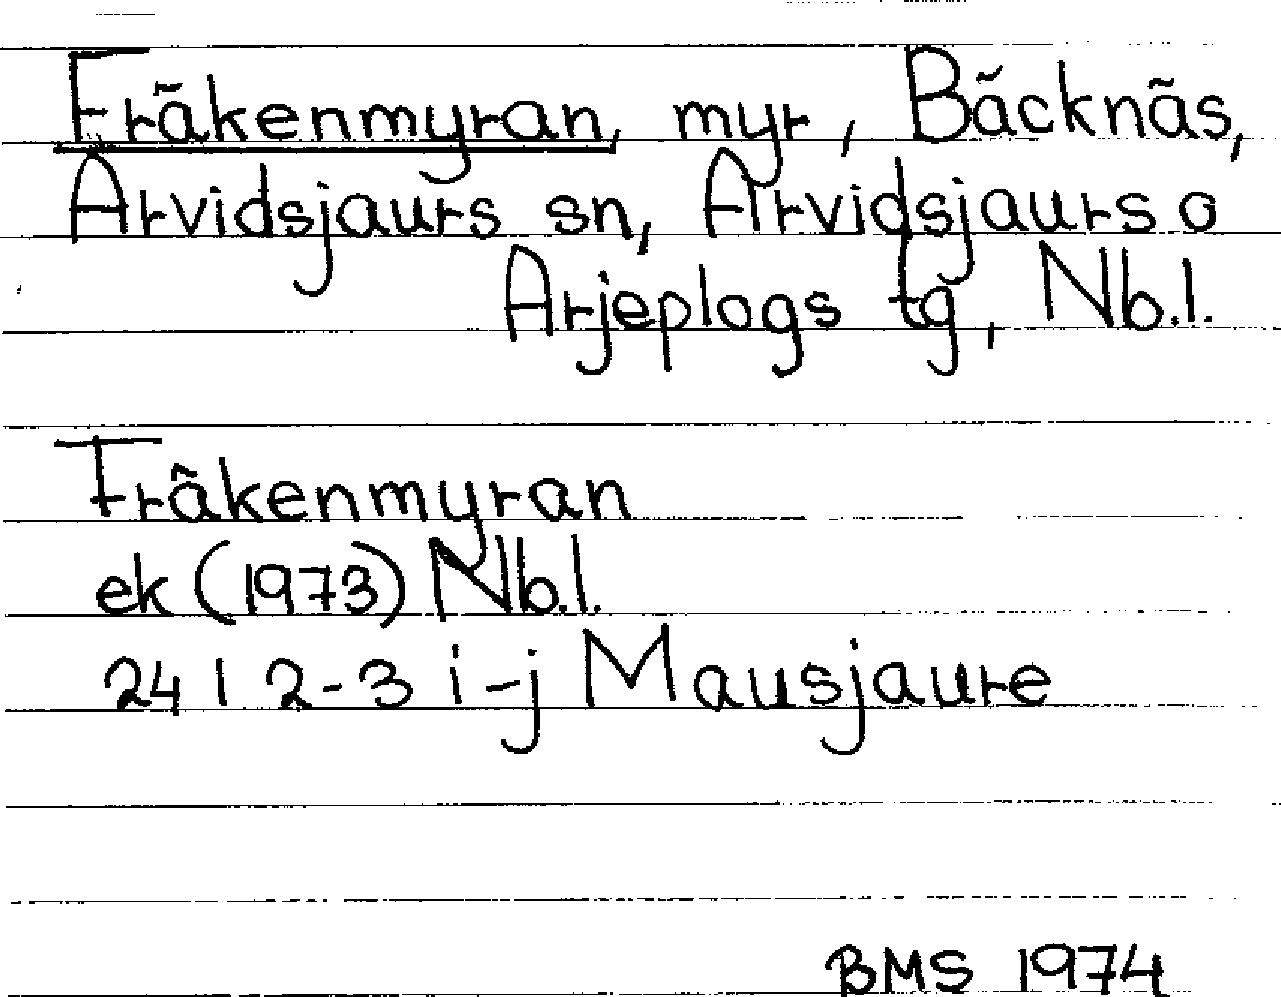 Fräkenmyran, myr, Bäcknäs,
Arvidsjaurs sn, Arvidsjaurs o
Arjeplogs tg, Nb.l.
Fräkenmyran
ek (1973) Nb.l.
24 I 2-3 i-j Mausjaure
BMS 1974